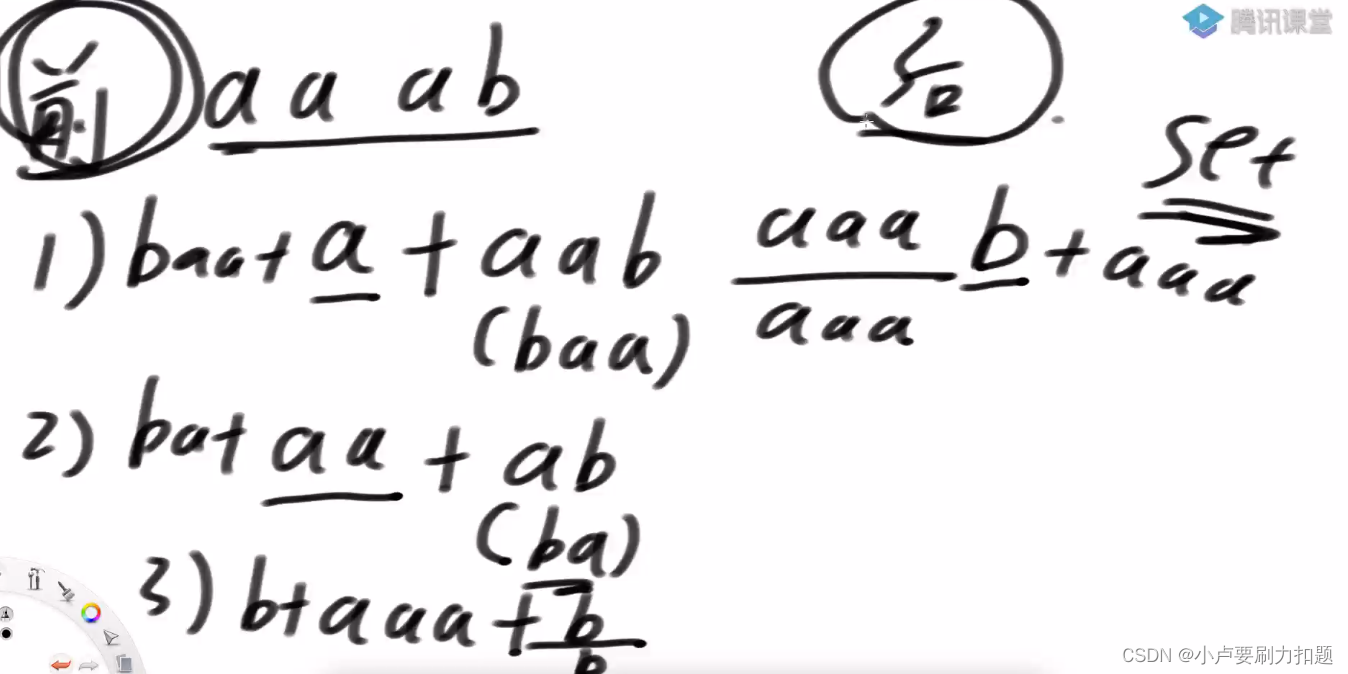 腾讯课堂
前 aa ab
set
1) baa+a+aab
(baa)
aaa b+aaa
aaa
2) ba+aa+ab
(ba)
3) b+aaa+b
b
CSDN @小卢要刷力扣题